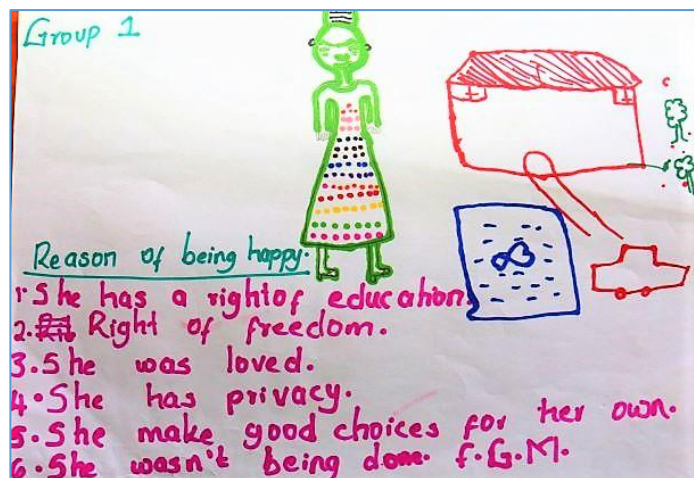 Group 1
Reason of being happy.
1. She has a right of education.
2. Right of freedom.
3. She was loved.
4. She has privacy.
5. She make good choices for her own.
6. She wasn't being done. F.G.M.